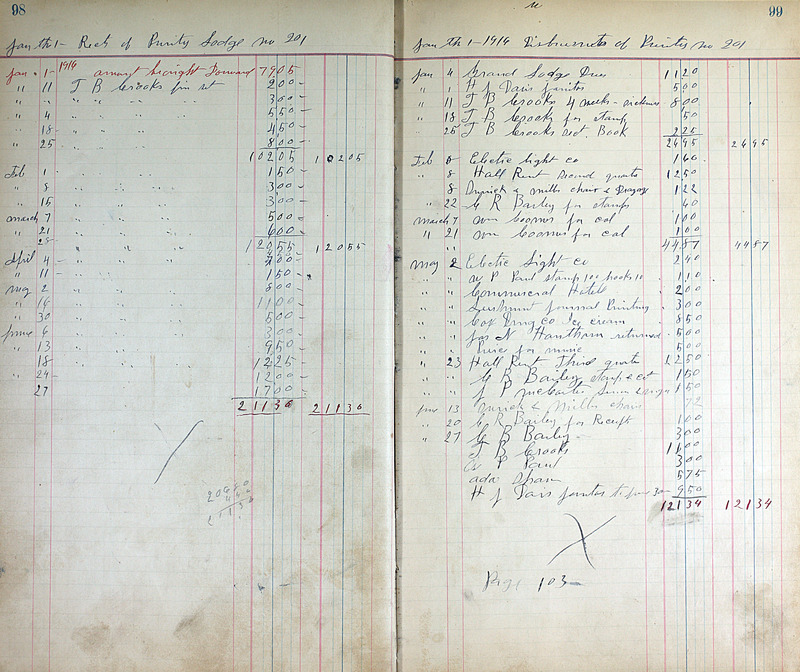 98
Jan th 1- Rect of Purity Lodge no 201
Jan 1- 1914 amount brought Forward 7905
" 11 J B Crooks fin sect 200
" " " " " " 300
" 4 " " " 550
" 18 " " " 450
" 25 " " " 800
10205 10205
Feb 1 " " " 150
" 8 " " " 300
" 15 " " " 300
March 7 " " " 500
" 21 " " " 600
" 28 12055 12055
April 4 " " " 400
" 11 " " " 150
may 2 " " " 800
" 16 " " " 1100
" 30 " " " 500
June 6 " " " 300
" 13 " " " 950
18 1225
" 24 1200
27 1700
21136 21136
20
21136
99
Jan th 1-1914 Disbursments of Purity no 201
Jan 4 Grand Lodge Dues 1120
" 1 H J Davis janitor 500
" 11 J B Crooks 4 weeks sickness 800
" 18 J B Crooks for stamp 50
" 25 J B Crooks sect Book 225
2495 2495
Feb 8 Electric Light co 160
" 8 Hall Rent second quarter 1250
8 & Mills chair & 122
" 22 G R Bailey for stamps 40
March 7 Wm for coal 100
" 21 Wm for coal 100
" 4487 4487
may 2 Electric Light co 240
" " W P Paul stamp 100 books 10 110
" " Commercial Hotel 200
" " Journal Printing 300
" " Cox Drug co Ice cream 850
" " Jas N returned 500
" " for music 500
" 23 Hall Rent Third quarter 1250
" " G R Bailey stamp & ect 150
" " J P 150
June 13 & Mills chairs 72
" 20 G R Bailey for Receipt 100
" 27 G R Bailey 300
J B Crooks 1100
W P Paul 300
ada 575
H J Davis janitor to June 30 950
12134 12134
Page 103